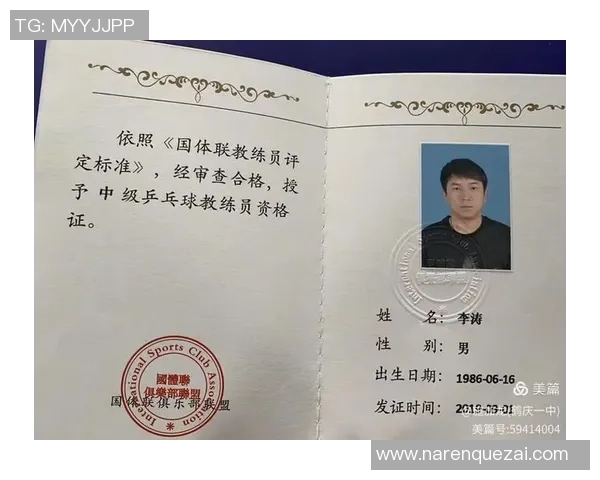 TG: MYYJJPP
依照《国体联教练员评
定标准》，经审查合格，授
予 中 级乒乓球教练员资格
证。
International Sports Club Association
國體聯
俱樂部聯盟
国体联俱乐部联盟
姓 名：李涛
性 别：男
出生日期：1986-06-16
发证时间：2019-03-01
美篇
庆一中)
美篇号:59414004
www.narenquezai.com